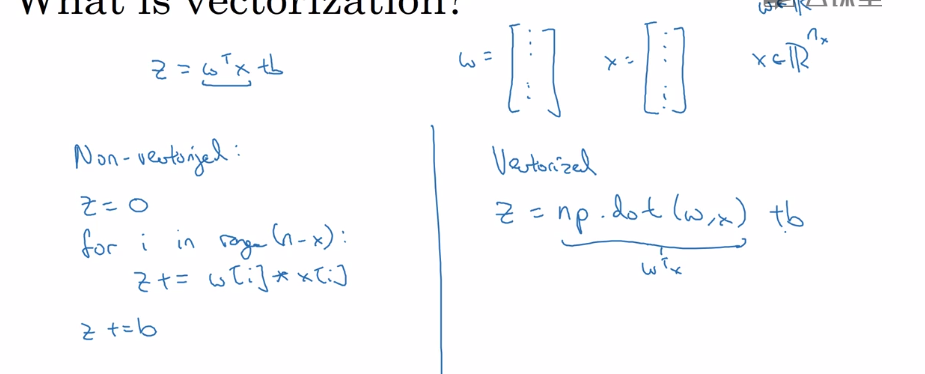 What is vectorization?
z = wᵀx + b
w = [⋮ ⋮]
x = [⋮ ⋮]
x ∈ ℝⁿˣ
Non-vectorized:
z = 0
for i in range(n-x):
z += w[i] * x[i]
z += b
Vectorized
z = np.dot(w,x) + b
wᵀx